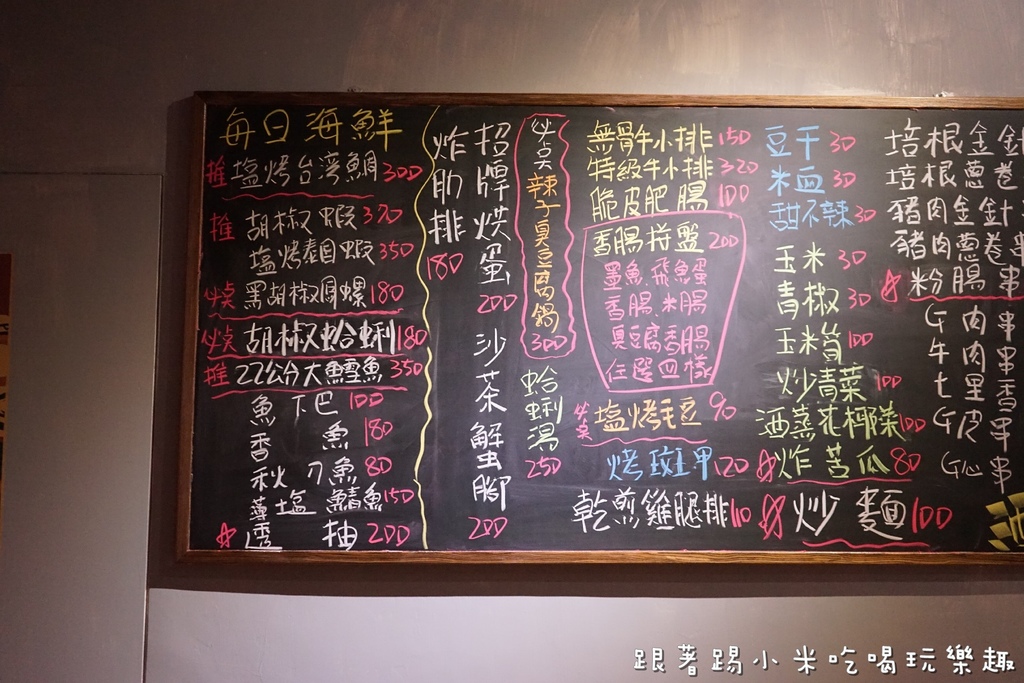 每日海鮮
推 塩烤台湾鯛 300
推 胡椒蝦 320
塩烤泰国蝦 350
必点 黑胡椒鳳螺 180
必点 胡椒蛤蜊 180
推 22公分大鱈魚 350
魚下巴 100
香魚 180
秋刀魚 80
薄塩鯖魚 150
透抽 200
炸肋排 180
招牌烘蛋 200
沙茶蟹腳 200
必点 辣子臭豆腐鍋 300
蛤蜊湯 250
無骨牛小排 150
特級牛小排 320
脆皮肥腸 100
香腸拼盤 200
墨魚.飛魚蛋
香腸.米腸
臭豆腐香腸
任選四樣
必点 塩烤毛豆 90
烤斑甲 120
乾煎雞腿排 110
豆干 30
米血 30
甜不辣 30
玉米 30
青椒 30
玉米筍 100
炒青菜 100
酒蒸花椰菜 100
炸苦瓜 80
炒麵 100
培根金針
培根蔥卷
豬肉金針
豬肉蔥卷串
粉腸串
牛肉串
七里香
皮串
心串
跟著踢小米吃喝玩樂趣